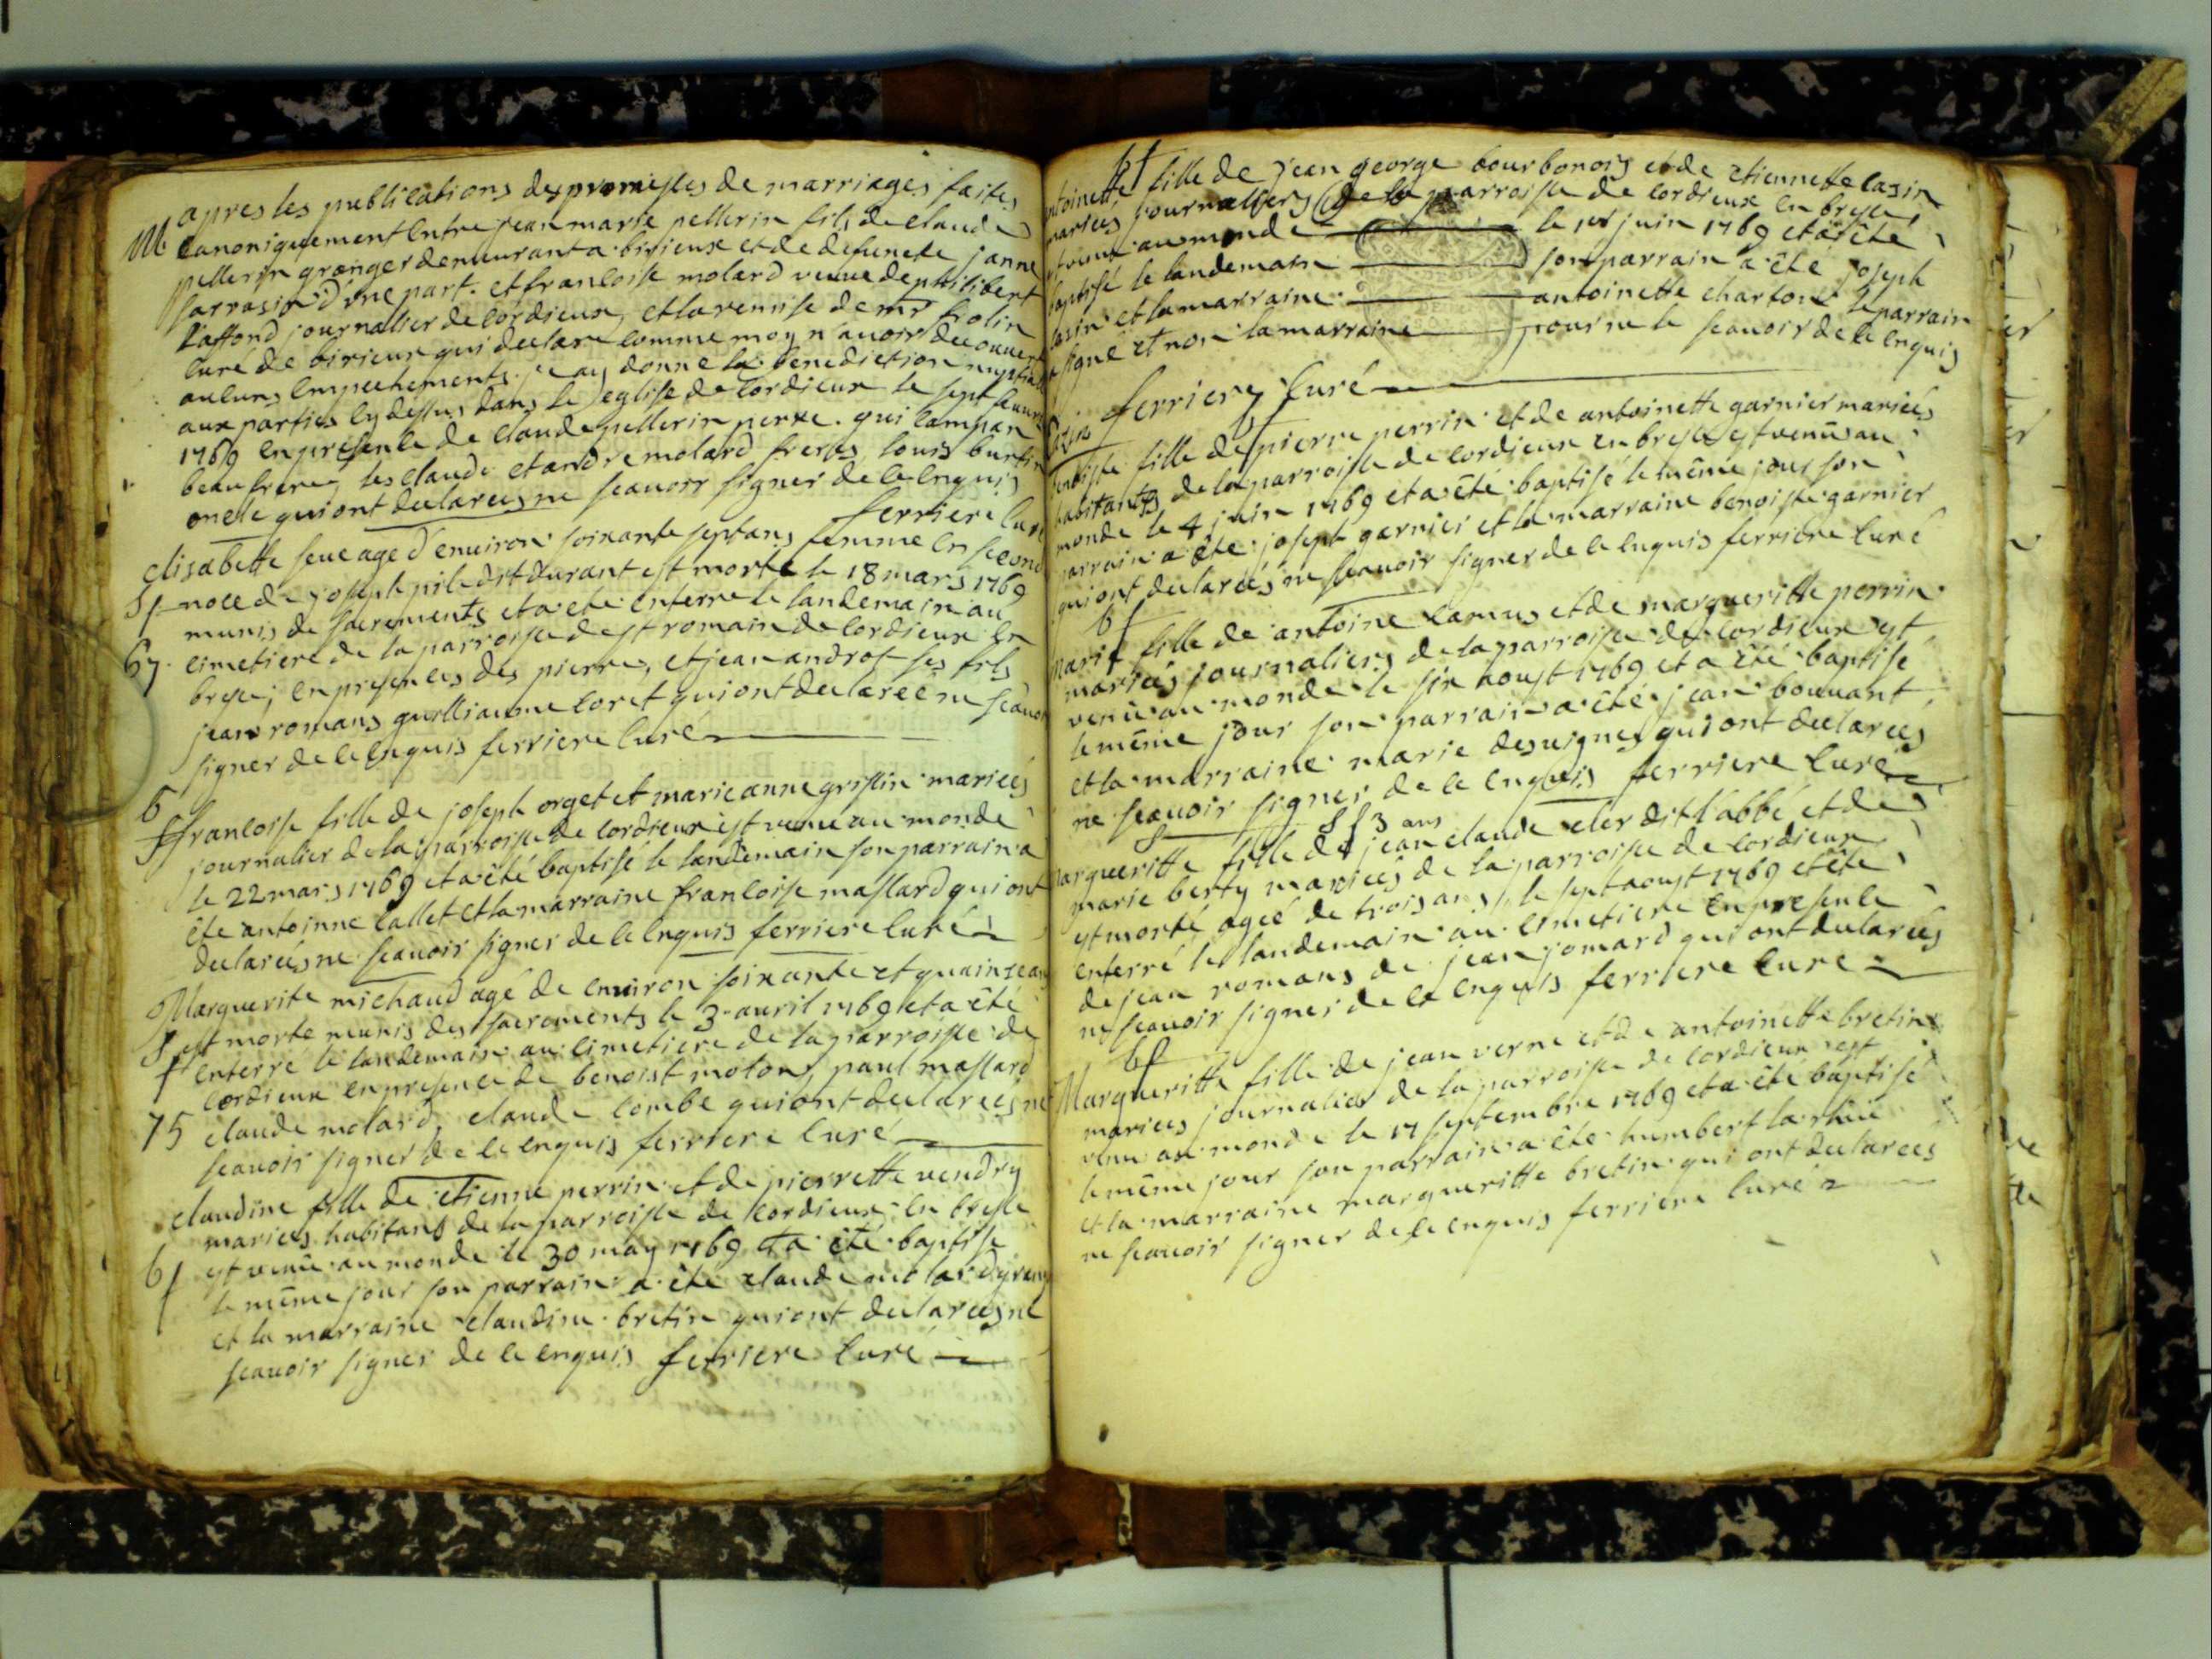 apres les publications des promesses de marriages faites
M canoniquement entre jean marie pellerin fils de claude
pellerin granger demeurant a birieux et de defuncte janne
sarrasin d'une part. et francoise molard veuve de philibert
laffond journalier de cordieux, et la remise de mr frolin
curé de birieux qui declare comme moy n'avoir decouvert
aucuns empechements. je ay donné la benediction nuptial
aux parties cy dessus dans le eglise de cordieux le sept
1769 en presence de claude pellerin perre. qui
beaufrere, les claude et andre molard freres, louis burtin
oncle qui ont declarees ne scavoir signer de ce enquis
ferriere curé
elisabette seve age d'environ soixante sept ans femme en second
Sf noce de joseph pile dit durant est morte le 18 mars 1769
munis de sacrements et a eté enterré le landemain au
67. cimetiere de la parroisse de st romain de cordieux en
bresse; en presences des pierre, et jean androt ses fils
jean romans guilliaume coret qui ont declareé ne scavoir
signer de ce enquis ferriere curé
b
f francoise fille de joseph orget et marie anne griffin marieés
journalier de la parroisse de cordieux est venu au monde
le 22 mars 1769 et a été baptisé le landemain son parrain a
éte antoinne callet et la marraine francoise massard qui ont
declareés ne scavoir signer de ce enquis ferriere curé
Marguerite michaud agé de environ soixante et quainze ans
S est morte munis des sacrements le 3 avril 1769 et a êté
f enterré le landemain au cimetiere de la parroisse de
cordieux en presence de benoist moton, paul massard
75 claude molard, claude combe qui ont declarees ne
scavoir signer de ce enquis ferriere curé
claudine fille de etienne perrin et de pierrette vendry
mariees habitans de la parroisse de cordieux en bresse
bf est venue au monde le 30 may 1769 et a êté baptisé
le même jour son parrain a êté claude molard
et la marraine claudine bretin qui ont declarees ne
scavoir signer de ce enquis ferriere curé
bf
antoinette fille de jean george bourbonois et de etiennette casin
mariees journalliers de la parroisse de cordieux en bresse,
et venue au monde le 1er juin 1769 et a êté
baptisé le landemain son parrain a êté joseph
casin et la marraine antoinette charton le parrain
a signé et non la marraine pour ne le scavoir de ce enquis
Casin ferriere curé
bf
benoiste fille de pierre perrin et de antoinette garnier marieés
habitants de la parroisse de cordieux en bresse est venüe au
monde le 4 juin 1769 et a été baptisé le même jour son
parrain a êté joseph garnier et la marraine benoiste garnier
qui ont declareés ne scavoir signer de ce enquis ferriere curé
bf
marie fille de antoine camus et de margueritte perrin
marieés journaliers de la parroisse de cordieux est
venüe au monde le six aoust 1769 et a êté baptisé
le même jour son parrain a êté jean bouvant
et la marraine marie desvignes qui ont declarees
ne scavoir signer de ce enquis ferriere curé
Sf 3 ans
margueritte fille de jean claude cler dit l'abbé et de
marie berty mariees de la parroisse de cordieux
est morte ageé de trois ans, le sept aoust 1769 et été
enterré le landemain au cimetiere en presence
de jean romans de jean jomard qui ont declareés
ne scavoir signer de ce enquis ferriere curé
bf
Margueritte fille de jean verne et de antoinette bretin
mariees journalier de la parroisse de cordieux est
venu au monde le 17 septembre 1769 et a êté baptisé
le même jour son parrain a êté humbert la rhue
et la marraine margueritte bretin qui ont declareés
ne scavoir signer de ce enquis ferriere curé